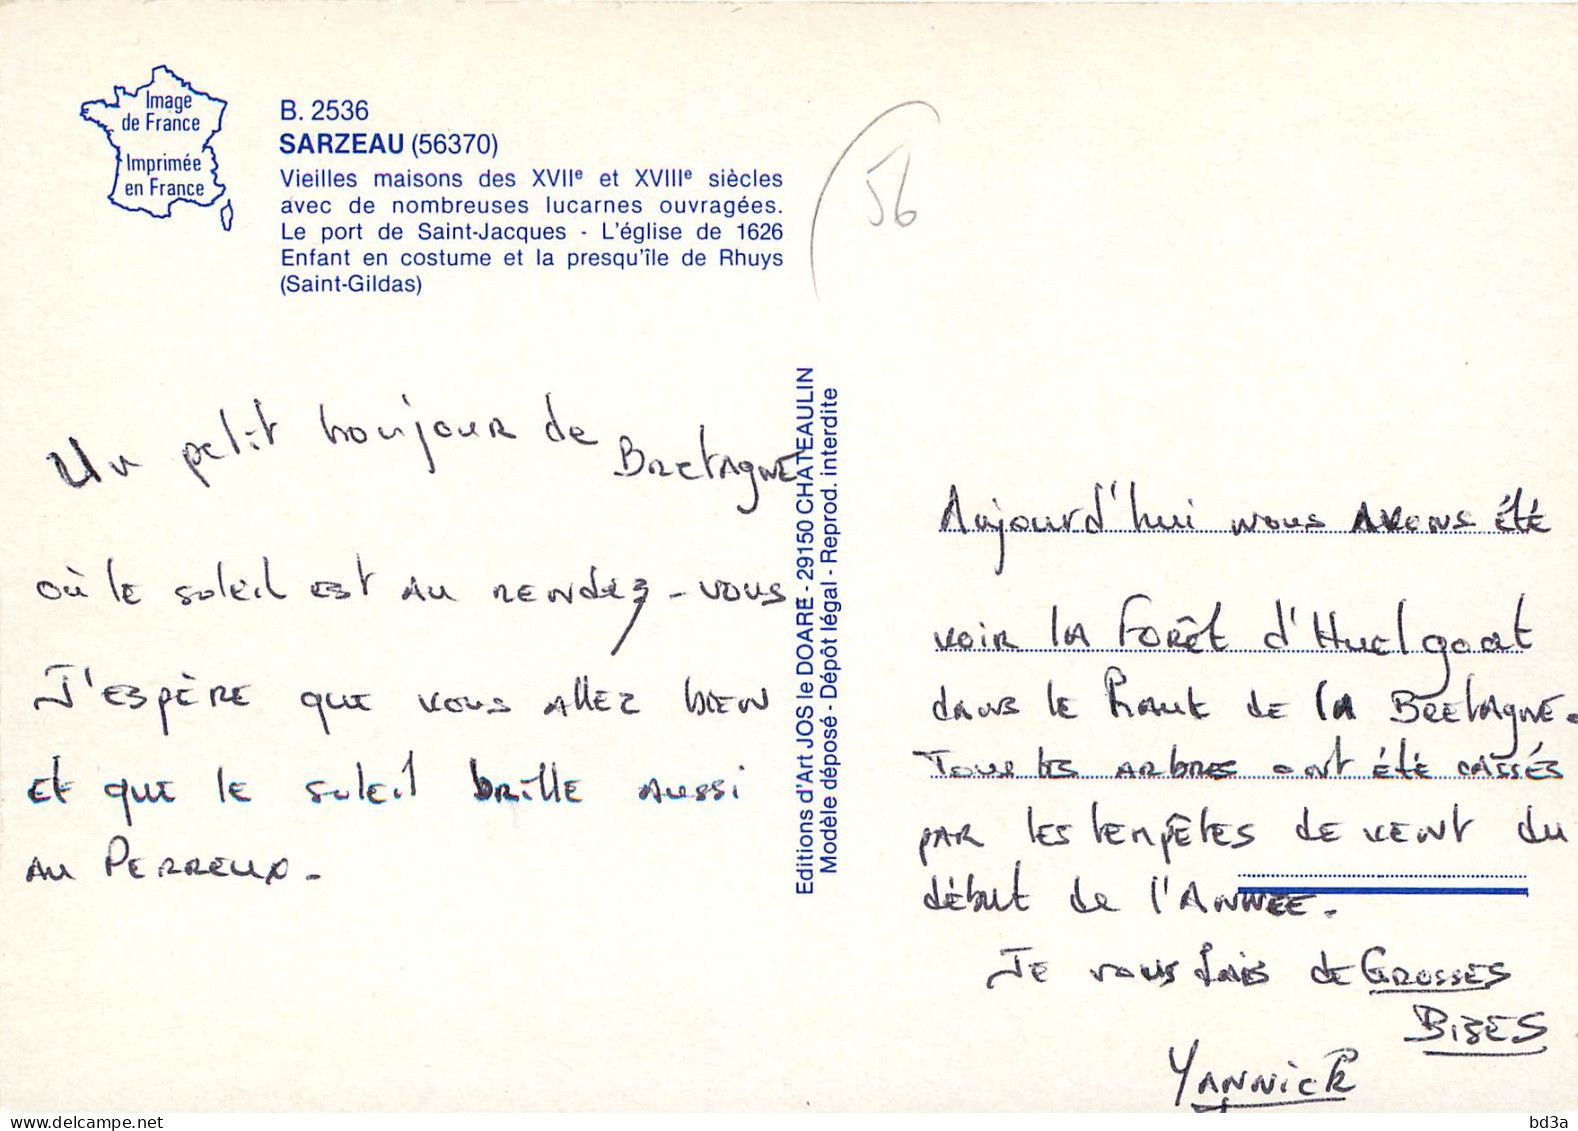 Image
de France
Imprimée
en France
B. 2536
SARZEAU (56370)
Vieilles maisons des XVIIe et XVIIIe siècles
avec de nombreuses lucarnes ouvragées.
Le port de Saint-Jacques - L'église de 1626
Enfant en costume et la presqu'île de Rhuys
(Saint-Gildas)
56
Un petit bonjour de Bretagne
où le soleil est au rendez-vous
J'espère que vous allez bien
et que le soleil brille aussi
au Perreux.
Editions d'Art JOS le DOARE - 29150 CHATEAULIN
Modèle déposé - Dépôt légal - Reprod. interdite
Aujourd'hui nous avons été
voir la Forêt d'Huelgoat
dans le haut de la Bretagne.
Tous les arbres ont été cassés
par les tempêtes de vent du
début de l'année.
Je vous fais de GROSSES
BISES
YANNICK
bd3a